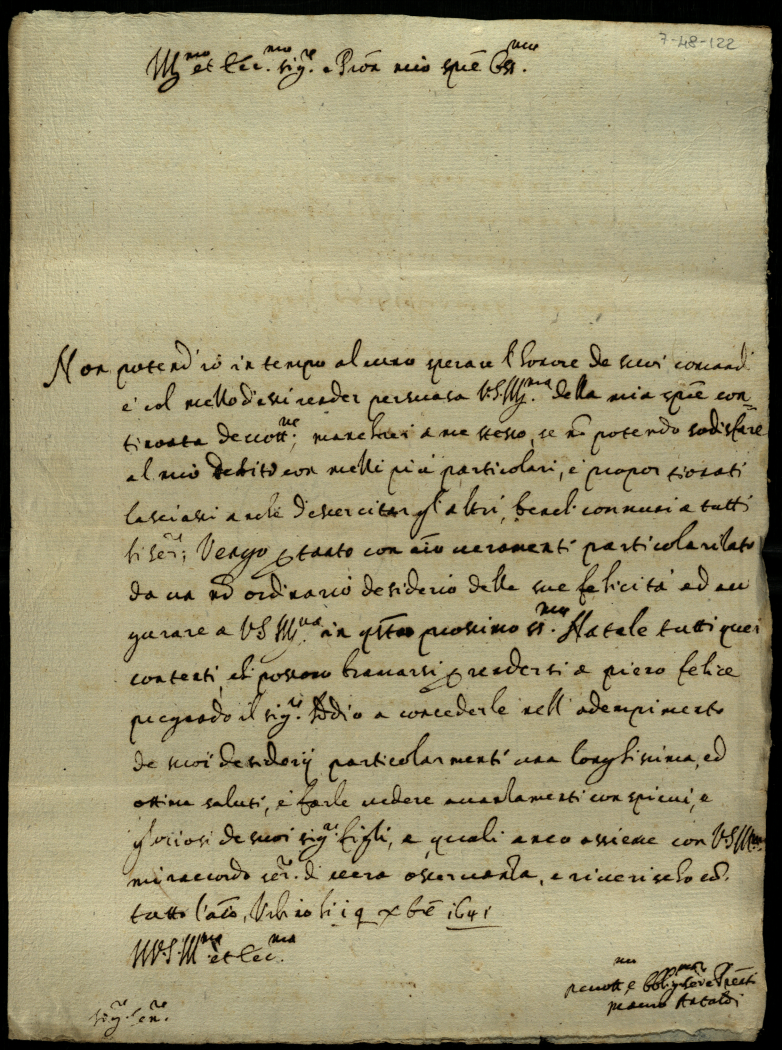 7-48-122
Ill.mo et Ecc.mo sig.re e Pron mio sple Oss.mo
Non potend'io in tempo alcuno sperare l'honore de suoi comandi
e col mezzo d'essi render persuasa V.S.Ill.ma della mia sple con-
tinuata deuott.ne, mancherei a me stesso, se nō potendo sodisfare
al mio debito con mezzi più particolari, e proportionati
lasciassi anche d'essercitar gl'altri, benche communi a tutti
li ser.ri; Vengo ptanto con aīo ueramente particolarizato
da un nō ordinario desiderio delle sue felicità ad au
gurare a V.S.Ill.ma in qsto prossimo ss.mo Natale tutti quei
contenti, che possono bramarsi p rendersi a pieno felice
pregando il sig.re Iddio a concederle nell'adempimento
de suoi desiderij particolarmente una longhissima, ed
ottima salute, e farle uedere auanzamenti conspicui, e
gloriosi de suoi sig.ri figli, a quali anco assieme con V.S.Ill.ma
mi raccordo ser.re di uera osseruanza, e riuerisco cō
tutto l'aīo, Urbino li 19 xbre 1641
Di V.S.Ill.ma et Ecc.ma
deuott.mo e obblig. ser.e
Antaldi
sig.r